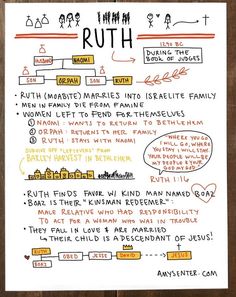 RUTH
1290 BC
DURING THE
BOOK OF JUDGES
NAOMI
SON
ORPAH
SON
RUTH
• RUTH (MOABITE) MARRIES INTO ISRAELITE FAMILY
• MEN IN FAMILY DIE FROM FAMINE
• WOMEN LEFT TO FEND FOR THEMSELVES
① NAOMI: WANTS TO RETURN TO BETHLEHEM
② ORPAH: RETURNS TO HER FAMILY
③ RUTH: STAYS WITH NAOMI
SURVIVE OFF "LEFTOVERS" FROM
BARLEY HARVEST IN BETHLEHEM
"WHERE YOU GO
I WILL GO, WHERE
YOU STAY I WILL STAY.
YOUR PEOPLE WILL BE
MY PEOPLE & YOUR
GOD MY GOD"
RUTH 1:16
• RUTH FINDS FAVOR W/ KIND MAN NAMED BOAZ
• BOAZ IS THEIR "KINSMAN REDEEMER":
MALE RELATIVE WHO HAD RESPONSIBILITY
TO ACT FOR A WOMAN WHO WAS IN TROUBLE
• THEY FALL IN LOVE & ARE MARRIED
↳ THEIR CHILD IS A DESCENDANT OF JESUS!
RUTH
BOAZ
OBED
JESSE
DAVID
JESUS
AMYSENTER.COM